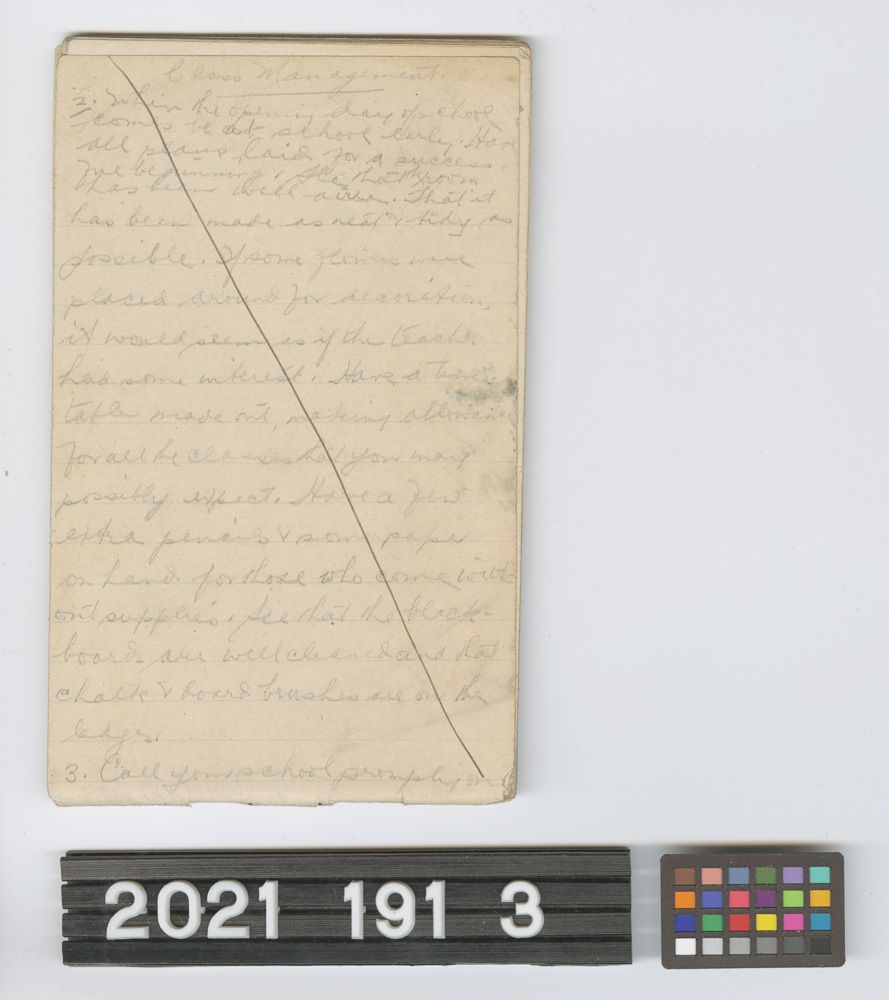 Class Management.
2. When the opening day of school
comes be at school early. Have
all plans laid for a success
beginning. See that room
has been well aired. That it
has been made as neat & tidy as
possible. If some flowers were
placed around for decoration,
it would seem as if the teacher
had some interest. Have a time
table made out, making allowance
for all the classes that you may
possibly expect. Have a few
extra pencils & some paper
on hand for those who come with
out supplies. See that the black-
boards are well cleaned and that
chalk & board brushes are on the
ledges.
3. Call your school promptly on
2021 191 3